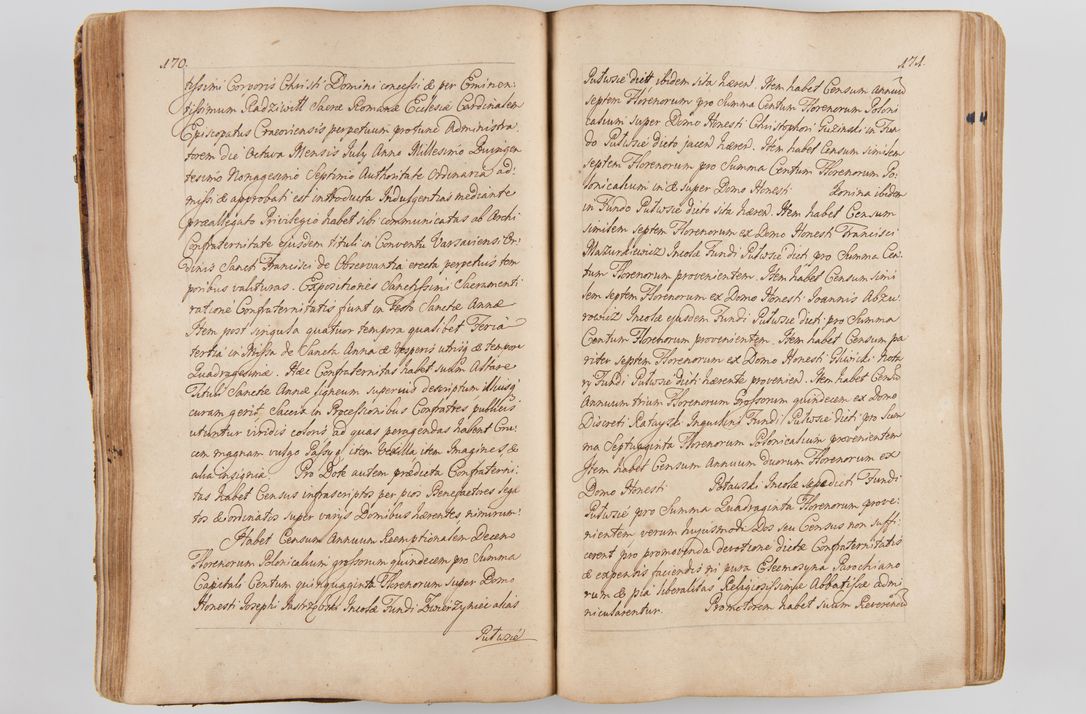 170.
tissimi Corporis Christi Domini concessi & per Eminen-
tissimum Radziwiłł Sacræ Romanæ Ecclesiæ Cardinalem
Episcopatus Cracoviensis perpetuum protunc Administra
torem die Octava Mensis July Anno Millesimo Quingen
tesimo Nonagesimo Septimo Authoritate Ordinaria ad:
missi & approbati est introducta Indulgentias mediante
præallegato Privilegio habet sibi communicatas ab Archi
Confraternitate ejusdem tituli in Conventu Varsaviensi Or
dinis Sancti Francisci de Observantia erecta perpetuis tem
poribus valituras. Expositiones Sanctissimi Sacramenti
ratione Confraternitatis fiunt in Festo Sanctæ Annæ
Item post singula quatuor tempora qualibet Feria
tertia in Missa de Sancta Anna & Vesperis utrisq & tempore
Quadragesimæ. Hæc Confraternitas habet suum Altare
Tituli Sanctæ Annæ ligneum superius descriptum illiusq
curam gerit. Saccis in Processionibus Confratres publicis
utuntur viridis coloris ad quas peragendas habent Cru
cem magnam vulgo Pasyą, item Vexilla item Imagines, &
alia insignia. Pro Dote autem prædicta Confraterni:
tas habet Census infrascriptos per pios Benefactores lega
tos & ordinatos super varijs Domibus hærentes, nimirum:
Habet Censum Annuum Reemptionalem Decem
Florenorum Polonicalium grossorum quindecem pro Summa
Capitali Centum quinquaginta Florenorum super Domo
Honesti Josephi Incolæ Fundi Zwierzyniec alias
Pułwsie
171.
Pułwsie dicti ibidem sita hæren. Item habet Censum Annuū
septem Florenorum pro Summa Centum Florenorum Poloni
calium super Domo Honesti Christophori Guzinski in Fun
do Pułwsie dicto jacen hæren. Item habet Censum similem
septem Florenorum pro Summa Centum Florenorum Po-
lonicalium in & super Domo Honesti Konina ibidem
in Fundo Pułwsie dicto sita hæren. Item habet Censum
similem septem Florenorum ex Domo Honesti Francisci
Mazurkiewicz Incolæ Fundi Pułwsie dicti pro Summa Cen-
tum Florenorum provenientem. Item habet Censum simi
lem septem Florenorum ex Domo Honesti Joannis
Incolæ ejusdem Fundi Pułwsie dicti pro Summa
Centum Florenorum provenientem. Item habet Censum pa
riter septem Florenorum ex Domo Honesti Gliwicki Nota
rij Fundi Pułwsie dicti hærente provenien. Item habet Censū
Annuum trium Florenorum Grossorum quindecem ex Domo
Discreti Inquilini Fundi Pułwsie dicti pro Sum
ma Septuaginta Florenorum Polonicalium provenientem
Item habet Censum Annuum duorum Florenorum ex
Domo Honesti Potawski Incolæ sæpedicti Fundi
Pułwsie pro Summa Quadraginta Florenorum prove:
nientem verum hujusmodi Dos seu Census non suffi
cerent pro promovenda devotione dictæ Confraternitatis
& expensis faciendis ni pura Eleemosyna Parochiano
rum & pia liberalitas Religiosissimæ Abbatissæ admi
nicularentur. Promotorem habet suum Reverendū